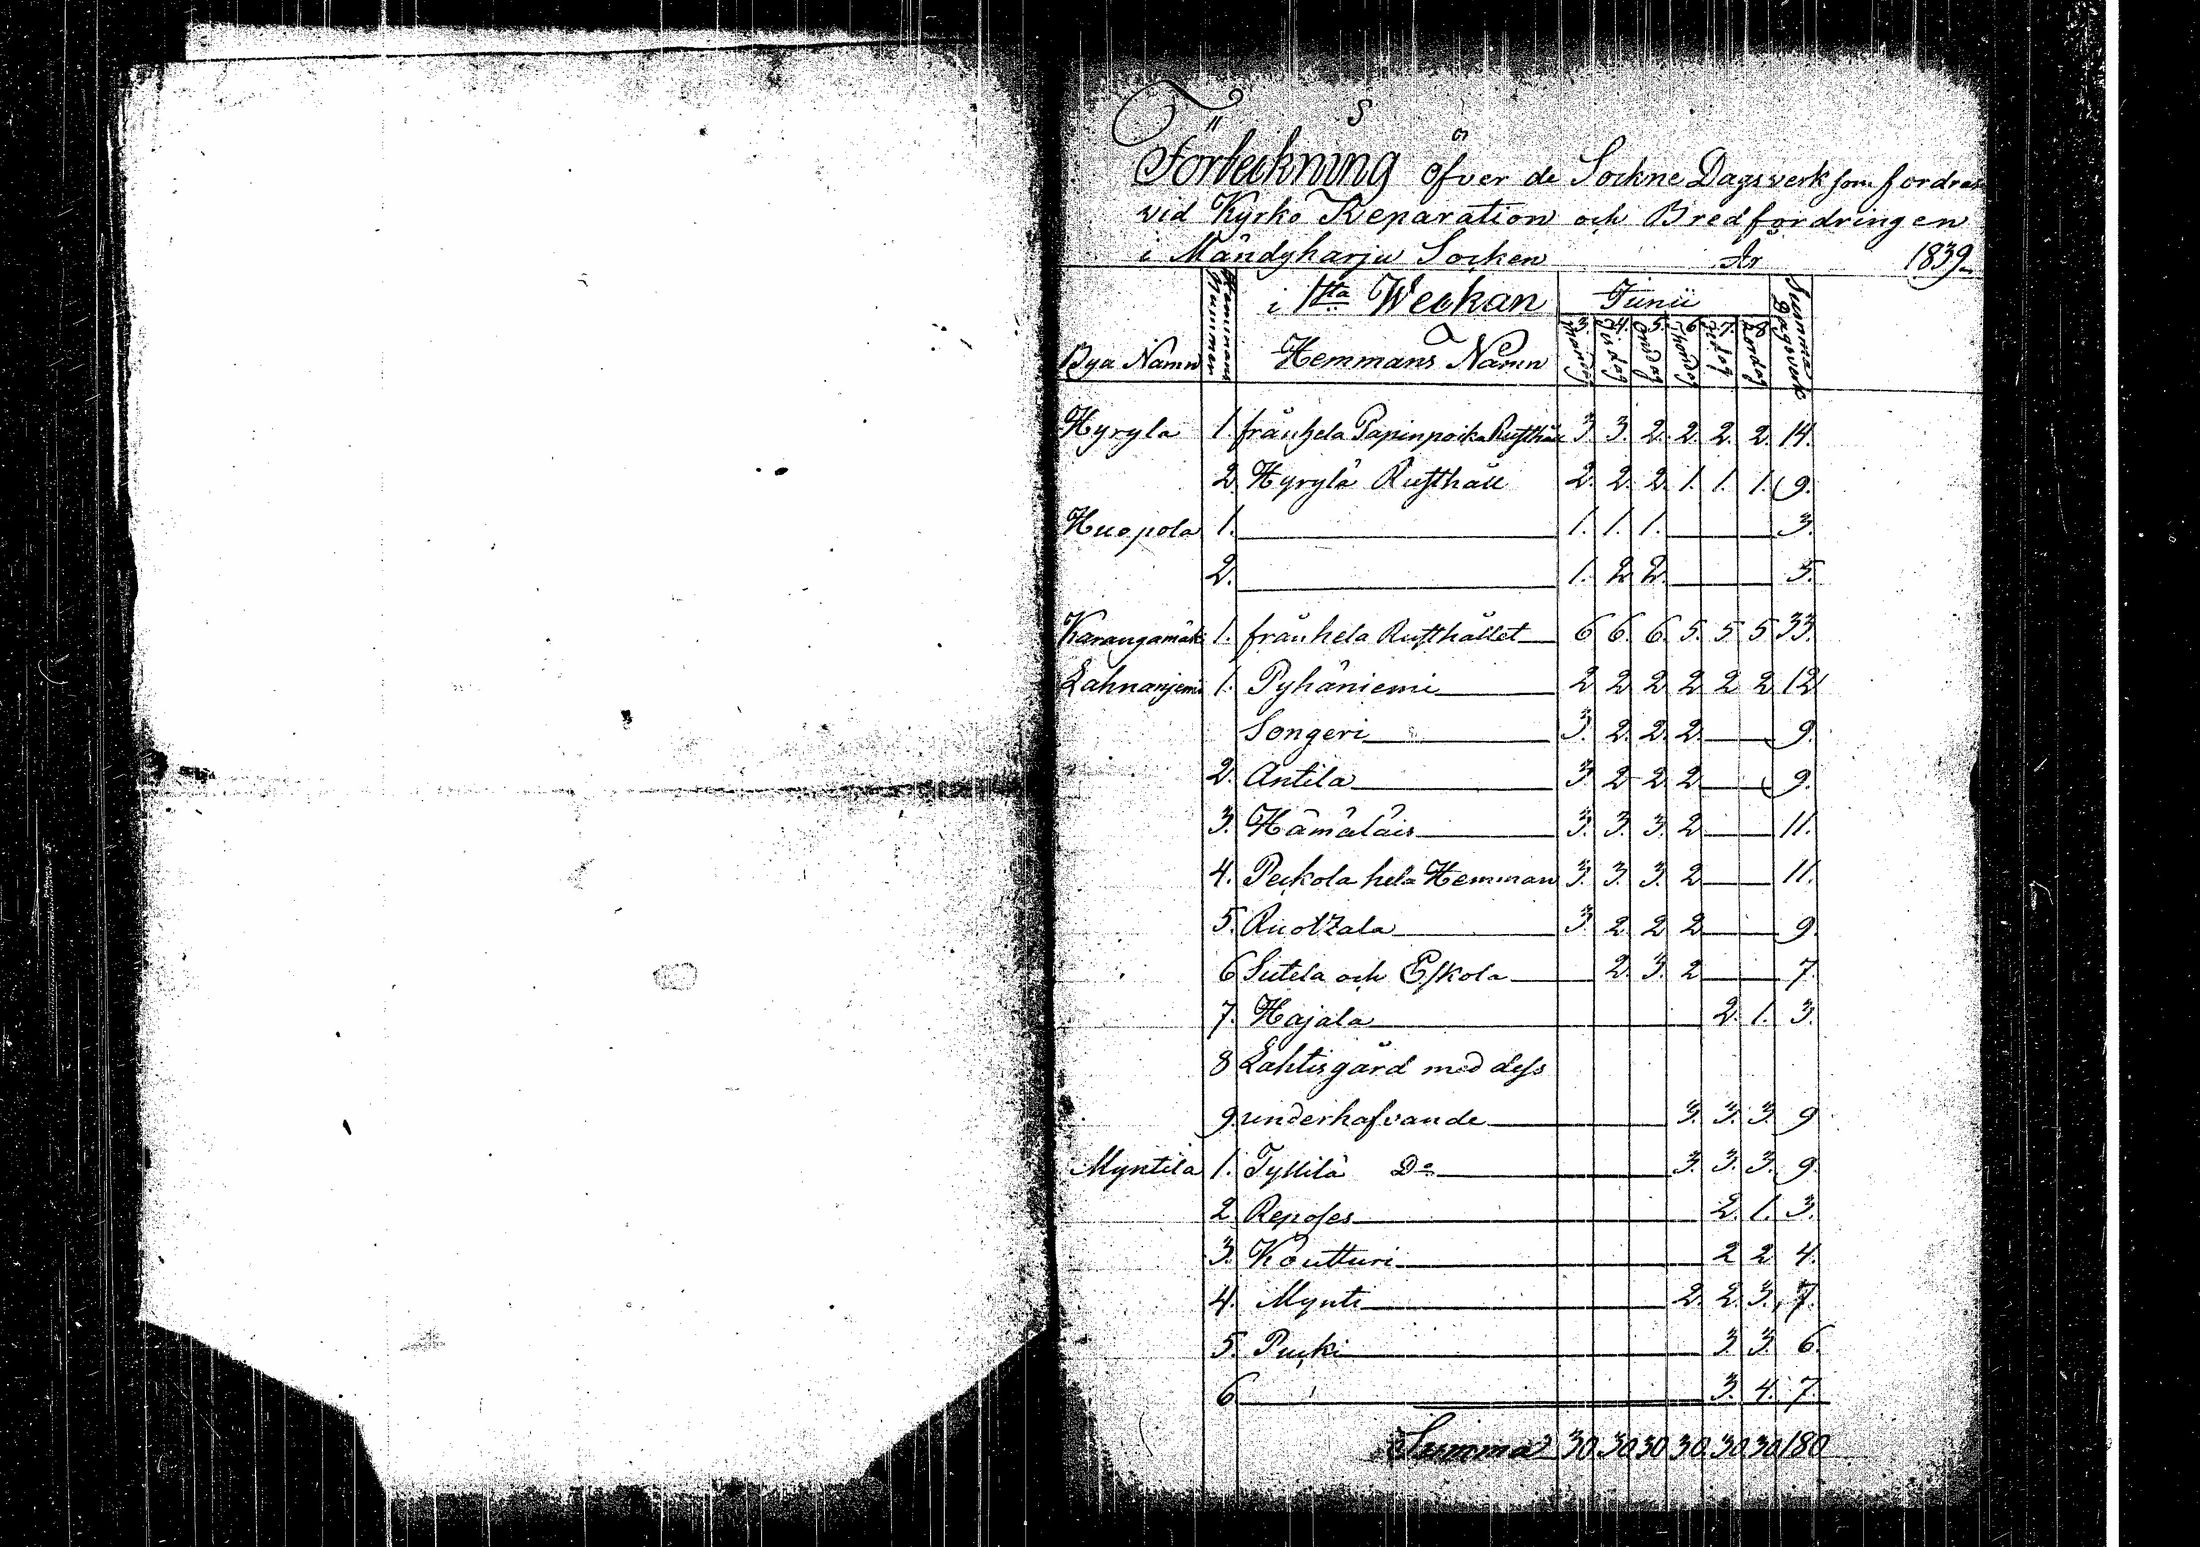 Förteckning öfver de Sockne Dagsverk som fordras
vid Kyrko Reparation och Bredfordringen
i Mändyharju Socken År 1839
Bya Namn Hemmans Nummer i 1sta Weckan Junii Summa Dagsverk
Hemmans Namn 3. Mandag 4. Tisdag 5. Onsdag 6. Thorsdag 7. Fredag 8. Lördag
Hyryla 1. från hela Papinpoika Rusthåll 3. 3. 2. 2. 2. 2. 14.
2. Hyrylä Rusthåll 2. 2. 2. 1. 1. 1. 9.
Huopola 1. 1. 1. 1. 3.
2. 1. 2. 2. 5.
Karangamäki 1. från hela Rusthållet 6 6. 6. 5. 5 5 33.
Lahnanjemi 1. Pyhäniemi 2 2 2 2 2 2 12
Songeri 3. 2. 2. 2. 9.
2. Antila 3. 2 2 2 9.
3. Hämäläis 3. 3. 3. 2 11.
4. Peckola hela Hemman 3. 3. 3. 2 11.
5. Ruotzala 3. 2. 2 2 9.
6 Sutela och Eskola 2. 3. 2 7.
7. Hajala 2. 1. 3.
8 Lahtisgård med dess
9. underhafvande 3. 3. 3. 9
Myntila 1. Tyllilä Do 3. 3. 3. 9.
2. Reposes 2. 1. 3.
3. Koutturi 2 2 4.
4. Mynti 2. 2. 3. 7.
5. Pucki 3 3. 6.
6 3. 4. 7.
Summa 30. 30. 30. 30. 30. 30. 180